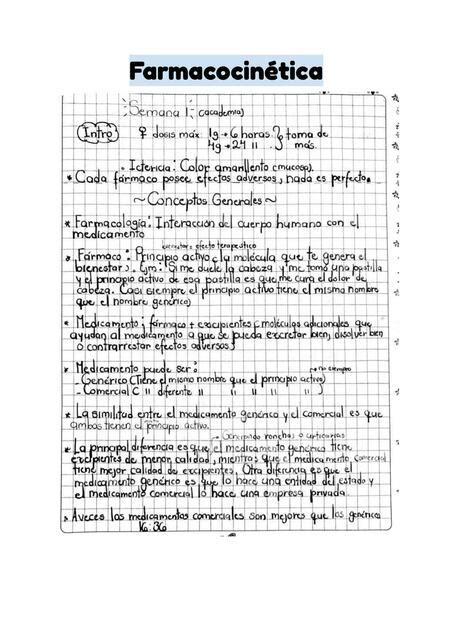 Farmacocinética
Semana 1 (academia)
Intro ♀ dosis máx 1g → 6 horas } toma de
4g → 24 " } más.
· Ictericia: Color amarillento (mucosa).
* Cada fármaco posee efectos adversos, nada es perfecto.
~ Conceptos Generales ~
* Farmacología: Interacción del cuerpo humano con el
medicamento
efecto terapéutico
* Fármaco: Principio activo (la molécula que te genera el
bienestar). Ejm: "Si me duele la cabeza y me tomo una pastilla
y el principio activo de esa pastilla es que me cura el dolor de
cabeza. Casi siempre el principio activo tiene el mismo nombre
que el nombre genérico)
* Medicamento: fármaco + excipientes (moléculas adicionales que
ayudan al medicamento a que se pueda excretar bien, disolver bien
o contrarrestar efectos adversos)
* Medicamento puede ser: → no siempre
- Genérico (Tiene el mismo nombre que el principio activo)
- Comercial ( " diferente " " " " " )
* La similitud entre el medicamento genérico y el comercial es que
ambos tienen el principio activo.
Generando ronchas o urticarias
* La principal diferencia es que el medicamento genérico tiene
excipientes de menor calidad, mientras que el medicamento comercial
tiene mejor calidad de excipientes. Otra diferencia es que el
medicamento genérico es que lo hace una entidad del estado y
el medicamento comercial lo hace una empresa privada
* Aveces los medicamentos comerciales son mejores que los genéricos
16:36